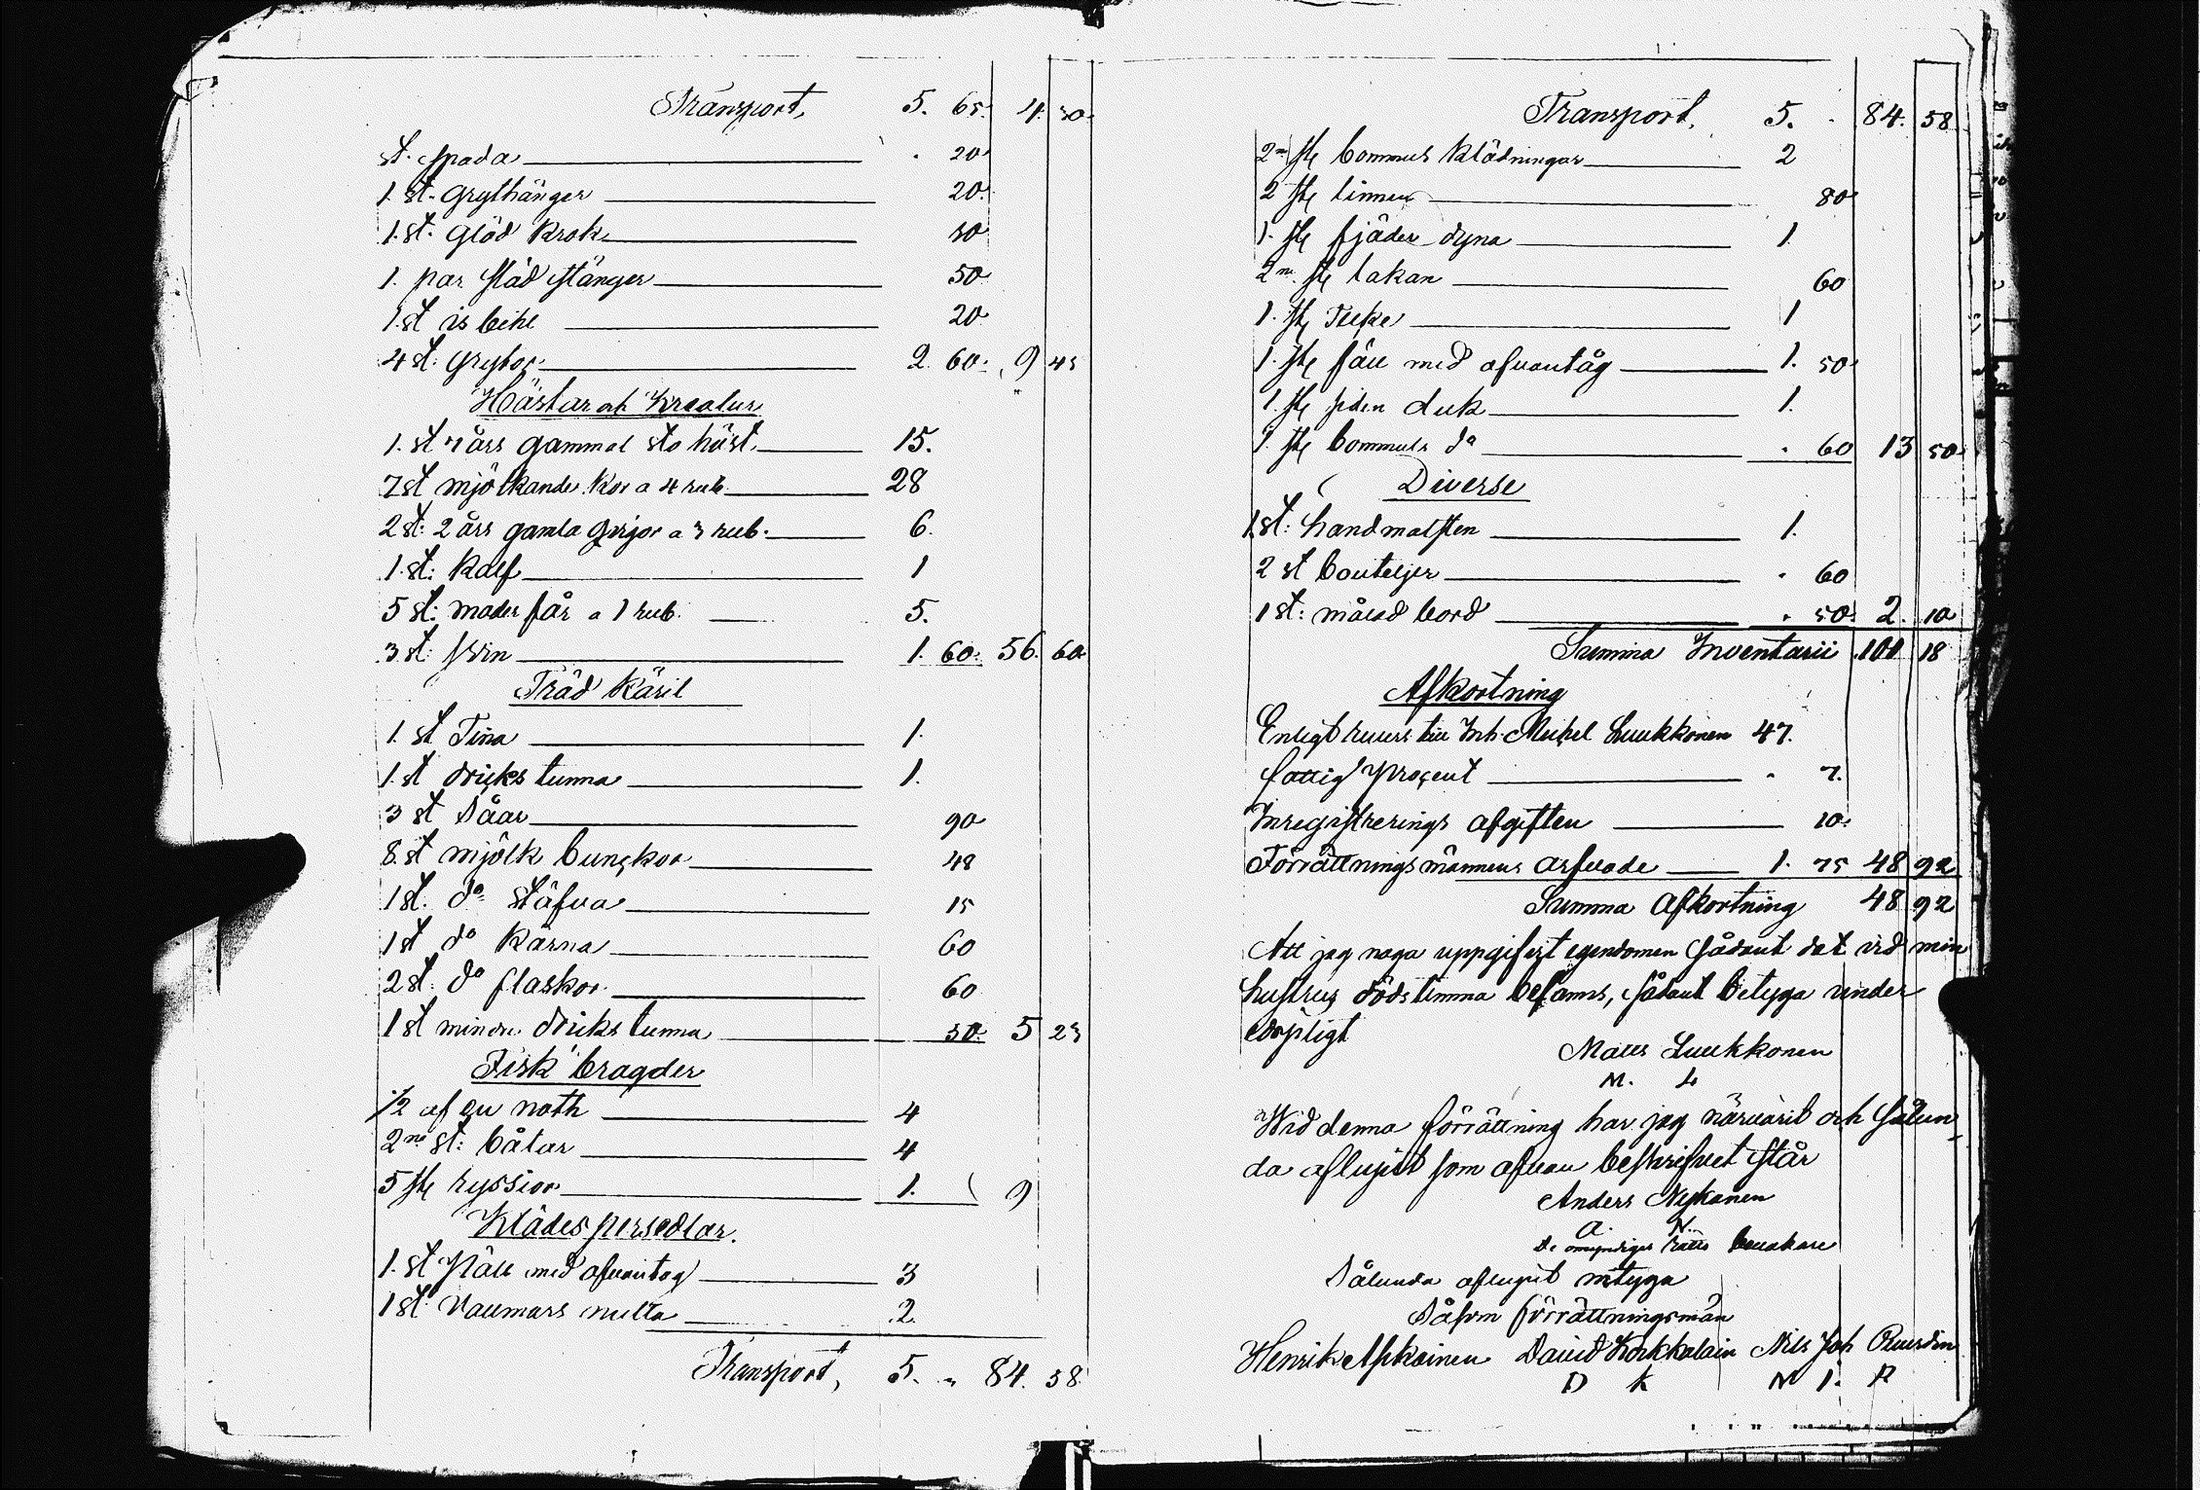 Transport, 5. 65. 4. 30.
st. spada 20
1. st. Grythänger 20.
1. st. Glöd Krok 10
1. par städ stänger 50
1. st is bihl 20
4 st: Grytor 2. 60. 9 45
Hästar och Kreatur
1. st 7 års gammal sto häst. 15.
7 st mjölkande Kor a 4 rub. 28
2 st: 2 års gamla Qvigor a 3 rub. 6.
1. st: Kalf 1
5 st: moder får a 1 rub. 5.
3 st: swin 1. 60. 56. 60.
Träd Käril
1. st Tina 1.
1. st dricks tunna 1.
3 st Såar 90
8. st mjölk bunckor 48
1 st. do stäfva 15
1 st do Kärna 60
2 st. do flaskor 60
1 st mindre dricks tunna 50. 5 23
Fisk bragder
1/2 af en noth 4
2ne st: båtar 4
5 st ryssior 1. 9
Klädes persedlar.
1. st Fäll med ofvantog 3
1 st: Vallmars multa 2.
Transport, 5. " 84. 58.
Transport, 5. 84. 58
2ne st bomuls Klädningar 2
2 st linnen 80
1. st fjäder dyna 1.
2ne st lakan 60
1. st Täcke 1
1. st fäll med ofvantåg 1. 50
1. st siden duk 1.
1 st bommuls do 60 13 50.
Diverse
1 st: handmalsten 1.
2 st bouteljer 60
1 st: målad bord 50. 2. 10
Summa Inventarii 101 18
Afkortning
Enligt till Inh. Mickel Luukkonen 47.
fattig Procent 7.
Inregistrerings afgiften 10.
Förrättningsmännens arfvode 1. 75 48 92
Summa Afkortning 48 92
Att jag noga uppgifvit egendomen sådant det vid min
hustrus dödstimma befanns, sådant betyga under
edspligt
Matts Luukkonen
M. L
Wid denna förrättning har jag närvarit och sålun-
da aflupit som ofvan beskrifvet står
Anders Nykänen
A. N.
De omyndiges rätts bevakare
Sålunda aflupit intyga
Såsom förrättningsmän
Henrik David Korkkalain Nils Joh
D K N I. R